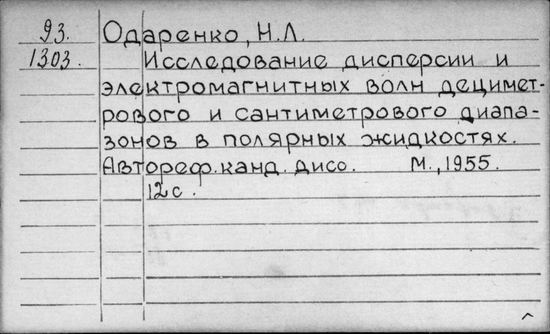 93. Одаренко, Н.Л.
1303. Исследование дисперсии и
электромагнитных волн дециmet-
рового и сантиметрового диапа-
зонов в полярных жидкостях.
Автореф. канд. дисс. М., 1955.
12 с.